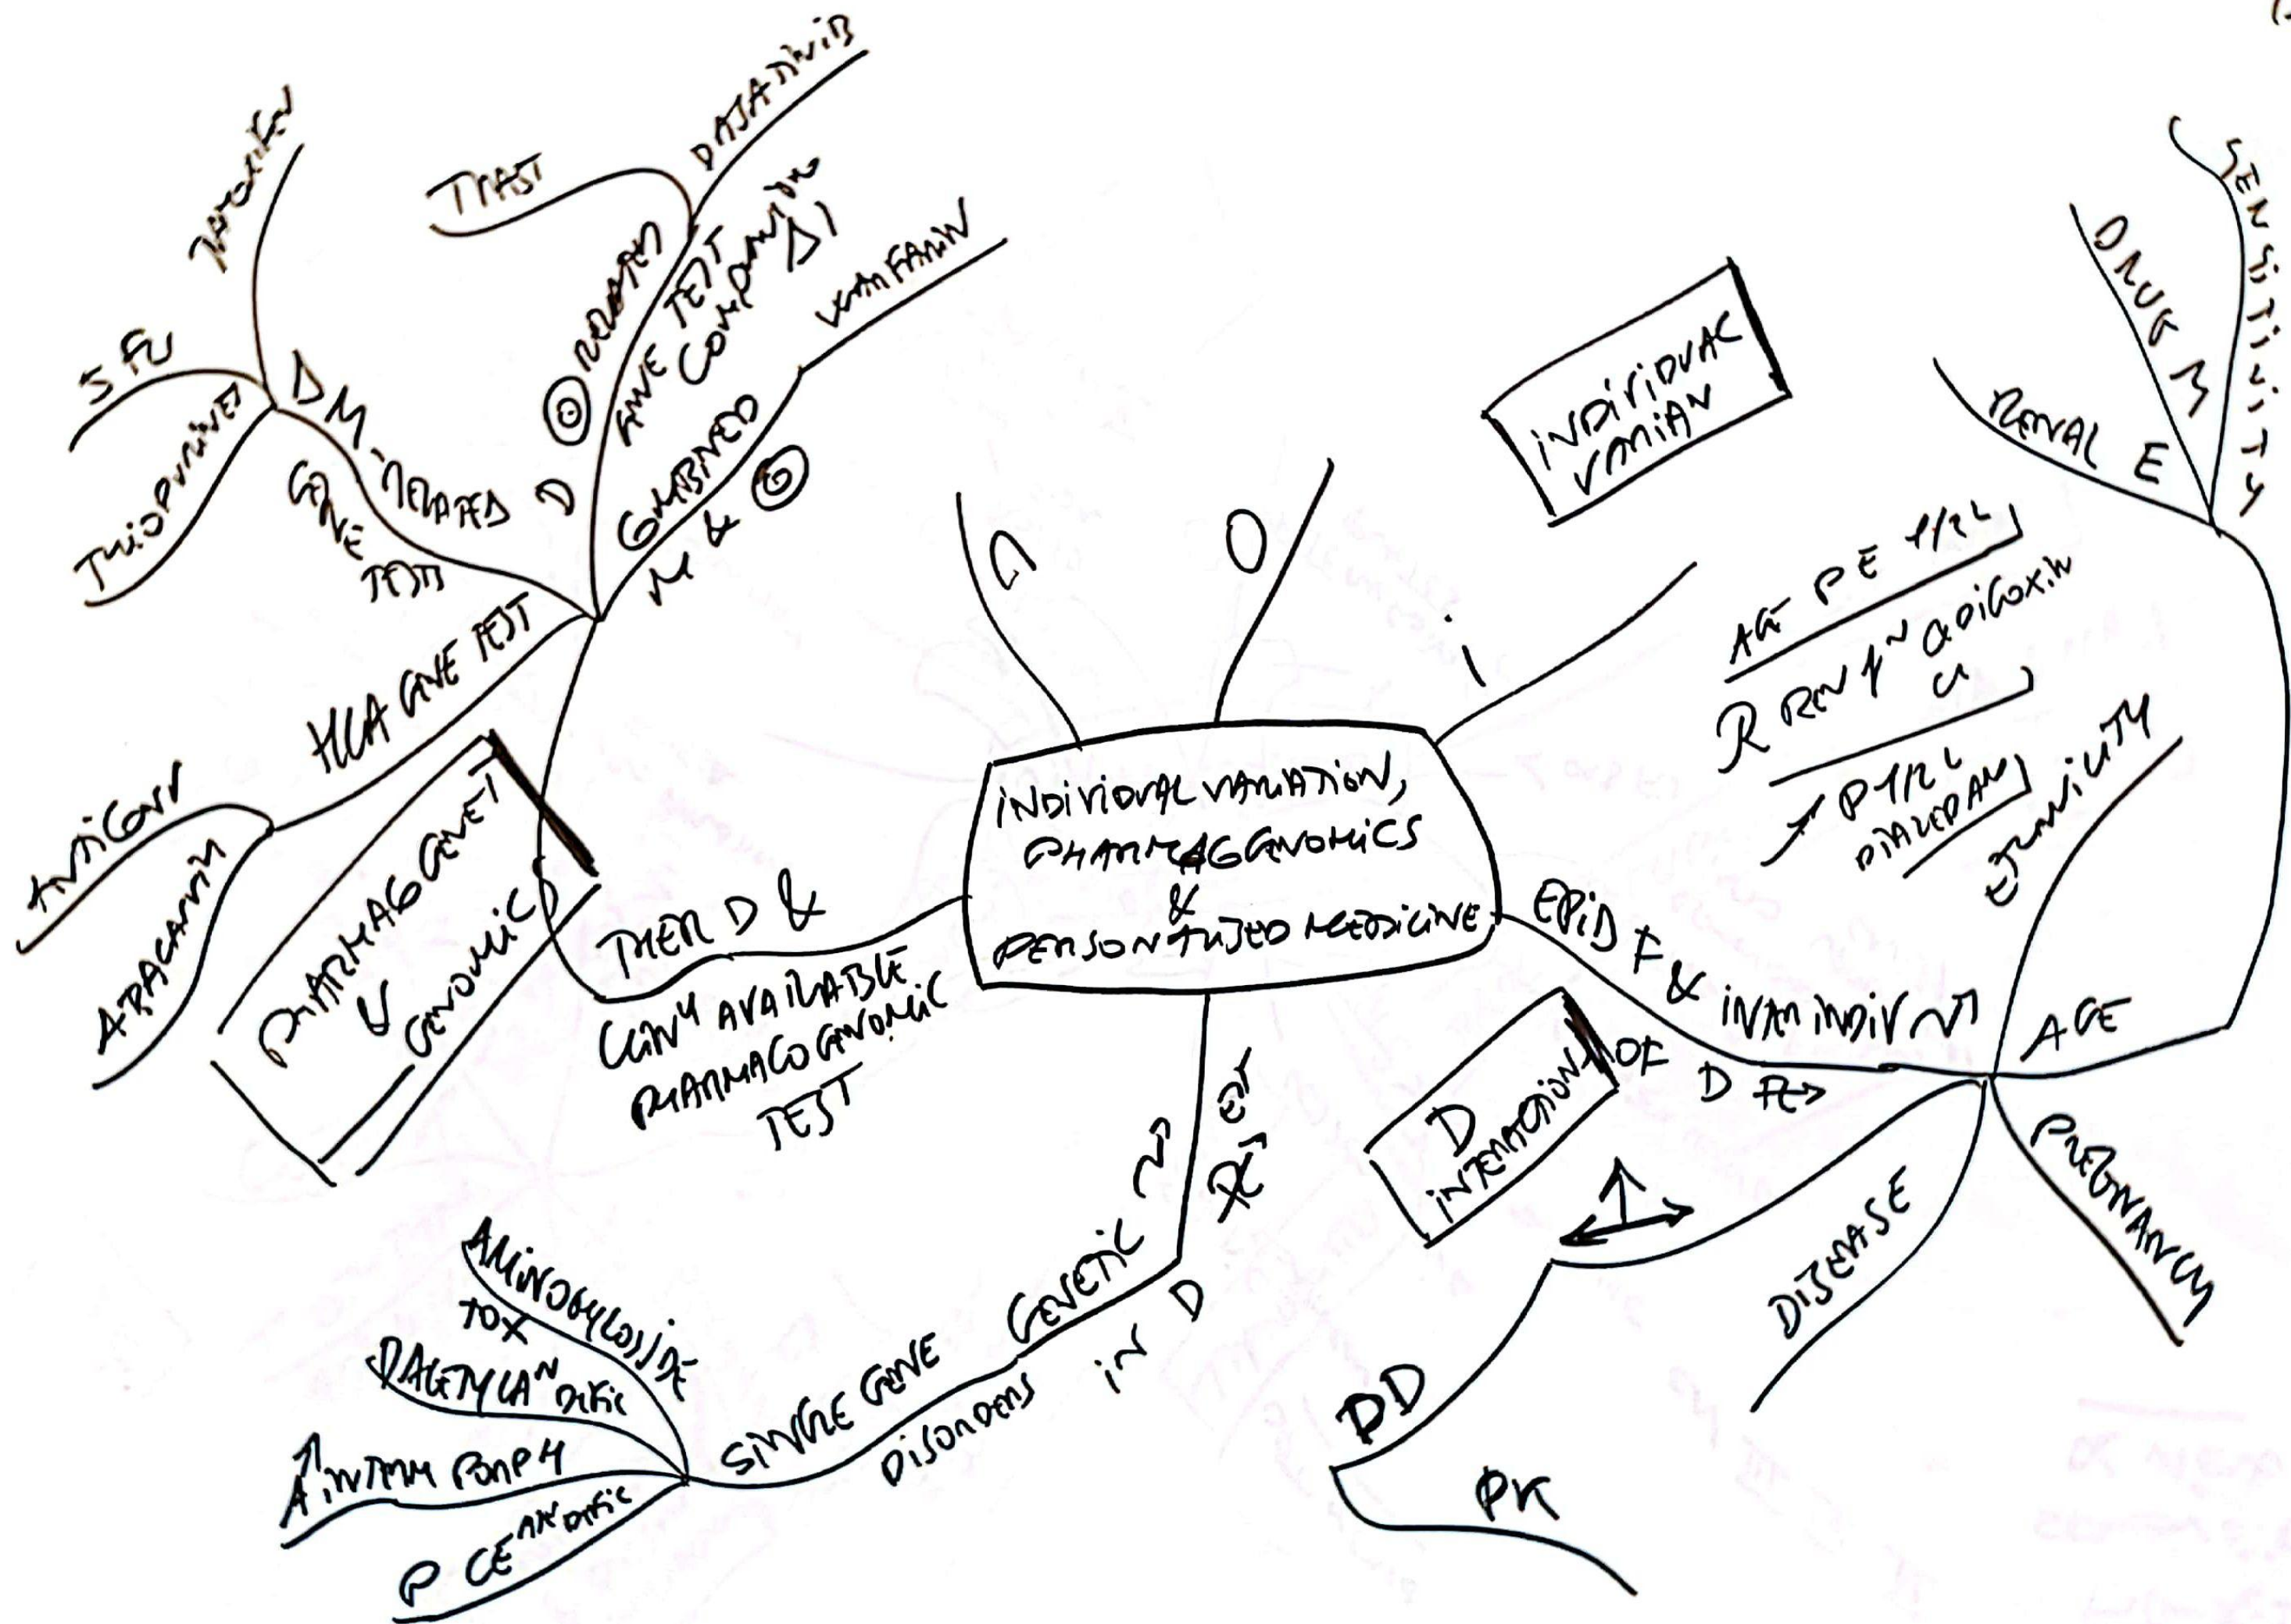 INDIVIDUAL VARIATION,
PHARMACOGENOMICS
&
PERSONALISED MEDICINE
O
i
INDIVIDUAL
VARIAN
EPID F & INTER INDIV
OF D
AGE
RENAL E
DRUG M
SENSITIVITY
AGE
DIGOXIN
DIAZEPAM
ETHNICITY
PREGNANCY
DISEASE
D
INTERACTION
PD
PK
GENETIC
IN D
SINGLE GENE
DISORDERS
AMINOGLYCOSIDE
TOX
INTERM PORPH
P CE
THER D &
CLIN Y AVAILABLE
PHARMACOGENOMIC
TEST
PHARMACOGENET
V
GENOMIC
HLA GENE TEST
ANTICONV
ABACAVIR
DM RELATED
GENE
TESTS
THIOPURINES
5 FU
TAMOXIFEN
D RELATED
GENE TEST
COMPANION
D
TRAST
DASATINIB
COMBINED
M &
WARFARIN